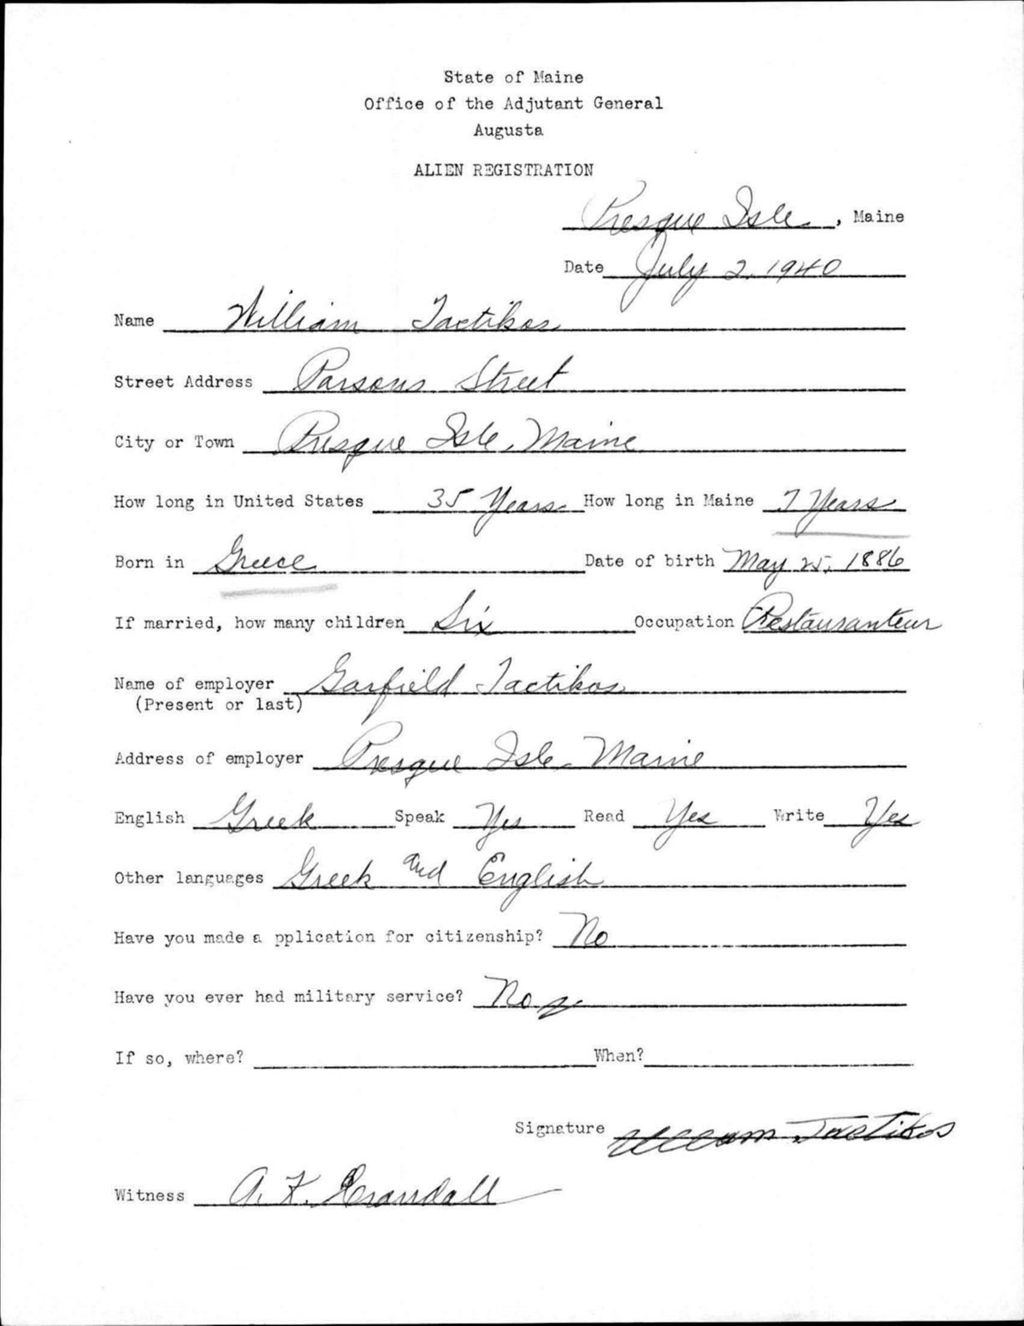 State of Maine
Office of the Adjutant General
Augusta
ALIEN REGISTRATION
Presque Isle, Maine
Date July 2, 1940
Name William Tactikos
Street Address Parsons Street
City or Town Presque Isle, Maine
How long in United States 35 Years How long in Maine 7 Years
Born in Greece Date of birth May 25, 1886
If married, how many children Six Occupation Restauranteur
Name of employer Garfield Tactikos
(Present or last)
Address of employer Presque Isle Maine
English Greek Speak Yes Read Yes Write Yes
Other languages Greek and English
Have you made a pplication for citizenship? No
Have you ever had military service? No
If so, where? When?
Signature William Tactikos
Witness A. F. Crandall